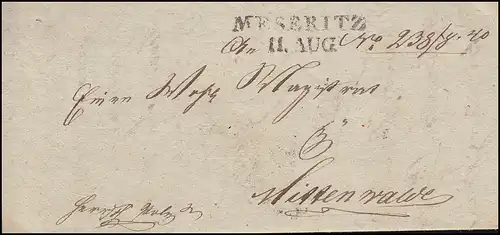 MESERITZ
11. AUG No 238/8.40
Einen Wohl Magistrat
zu
Mittenwalde